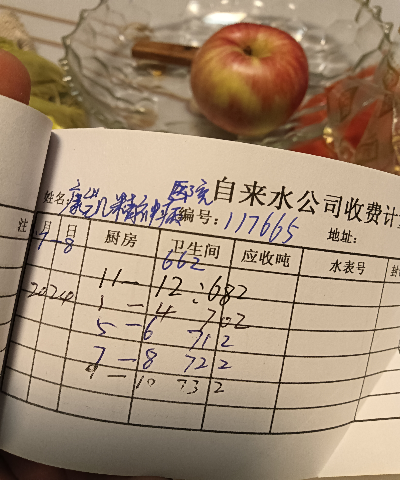 自来水公司收费计
姓名: 精神病医院 编号: 117665 地址:
注 月 日 厨房 卫生间 应收吨 水表号
7-8 662
11-12: 682
2024 3-4 702
5-6 712
7-8 722
9-10 732